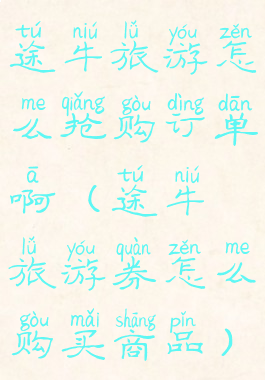 tú niú lǚ yóu zěn
途牛旅游怎
me qiǎng gòu dìng dān
么抢购订单
ā tú niú
啊(途牛
lǚ yóu quàn zěn me
旅游券怎么
gòu mǎi shāng pǐn
购买商品)